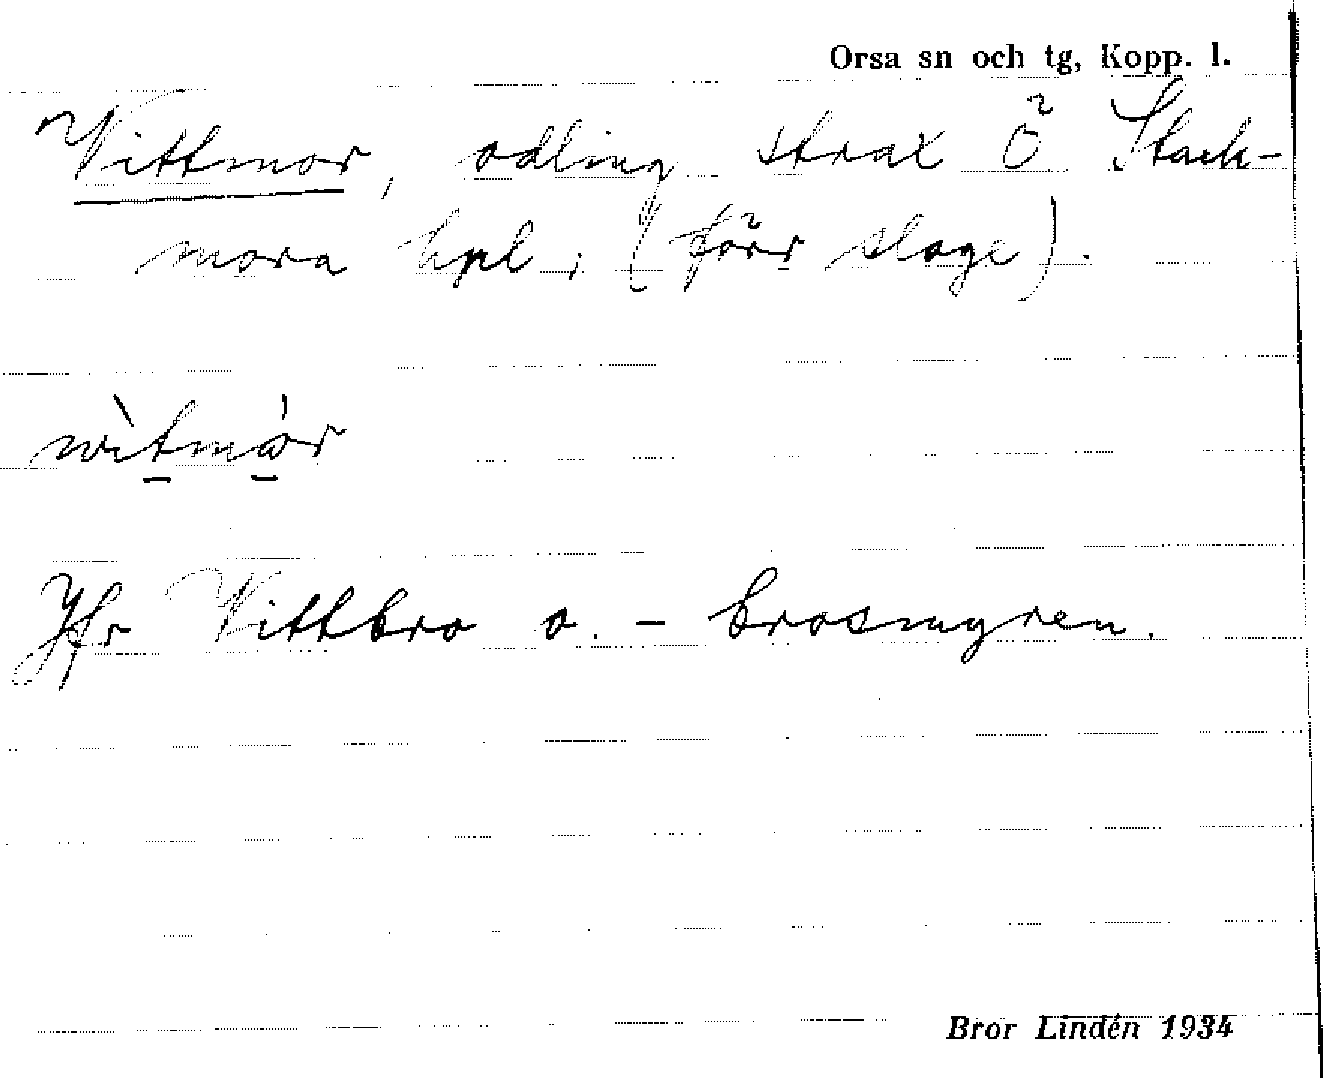 Orsa sn och tg, Kopp. l.
Vittmor, odling strax Ö Stack-
mora hpl. (förr slage).
wìtmȧr
Jfr Vittbro o. - brosmyren.
Bror Lindén 1934